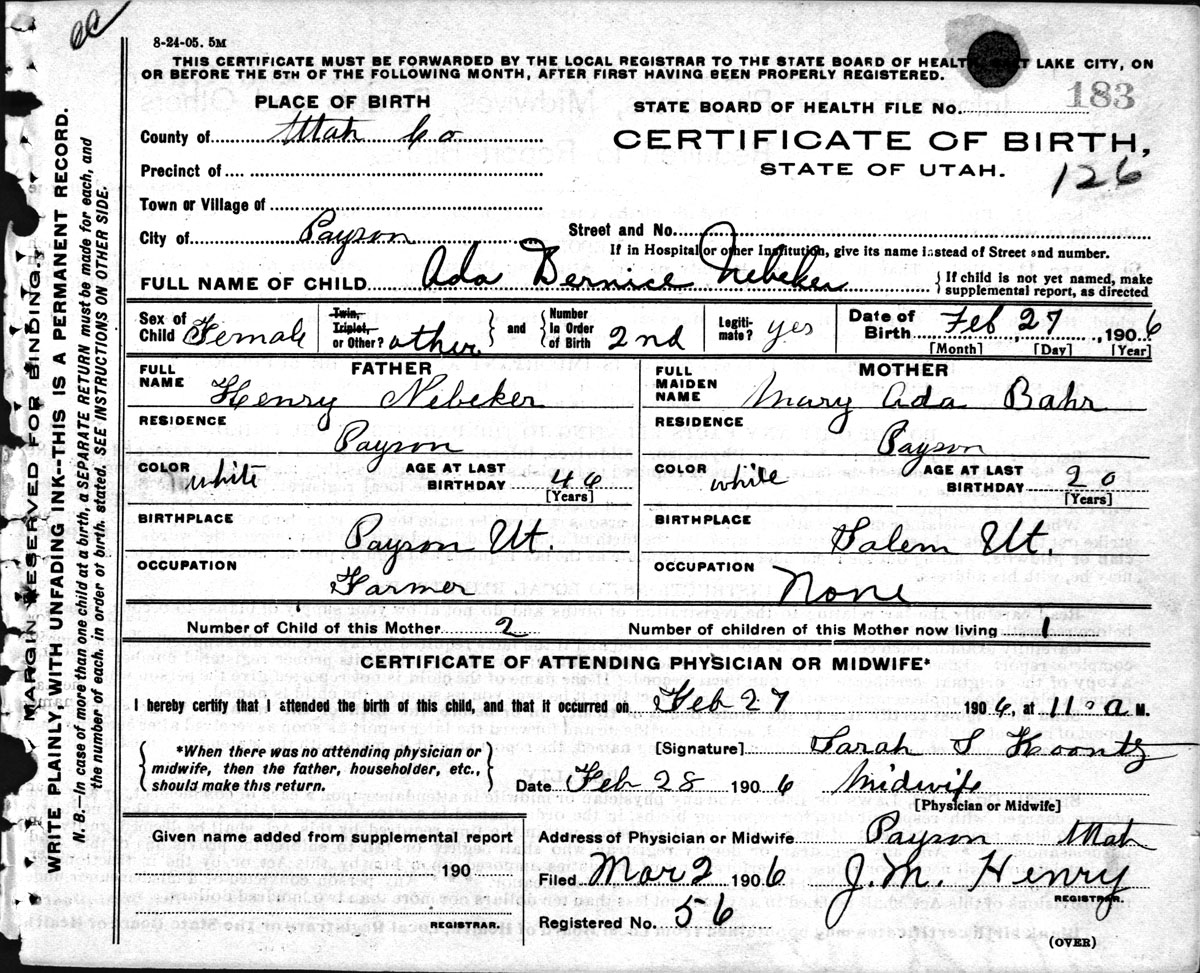 8-24-05. 5M
THIS CERTIFICATE MUST BE FORWARDED BY THE LOCAL REGISTRAR TO THE STATE BOARD OF HEALTH LAKE CITY, ON
OR BEFORE THE 5TH OF THE FOLLOWING MONTH, AFTER FIRST HAVING BEEN PROPERLY REGISTERED.
PLACE OF BIRTH
STATE BOARD OF HEALTH FILE No. 183
County of Utah Co
CERTIFICATE OF BIRTH,
Precinct of
STATE OF UTAH.
126
Town or Village of
City of Payson
Street and No.
If in Hospital or other Institution, give its name instead of Street and number.
FULL NAME OF CHILD Ada Bernice Nebeker { If child is not yet named, make supplemental report, as directed
Sex of Child Female
Twin, Triplet, or Other? other } and { Number In Order of Birth 2nd
Legiti-mate? yes
Date of Birth Feb 27, 1906
[Month] [Day] [Year]
FATHER
FULL NAME Henry Nebeker
MOTHER
FULL MAIDEN NAME Mary Ada Bahr
RESIDENCE Payson
RESIDENCE Payson
COLOR white AGE AT LAST BIRTHDAY 46 [Years]
COLOR white AGE AT LAST BIRTHDAY 20 [Years]
BIRTHPLACE Payson Ut.
BIRTHPLACE Salem Ut.
OCCUPATION Farmer
OCCUPATION None
Number of Child of this Mother 2 Number of children of this Mother now living 1
CERTIFICATE OF ATTENDING PHYSICIAN OR MIDWIFE*
I hereby certify that I attended the birth of this child, and that it occurred on Feb 27 1906, at 11 a M.
{ *When there was no attending physician or midwife, then the father, householder, etc., should make this return. }
[Signature] Sarah S Koontz
Date Feb 28 1906 Midwife
[Physician or Midwife]
Given name added from supplemental report
190
REGISTRAR.
Address of Physician or Midwife Payson Utah
Filed Mar 2 1906 J. M. Henry
REGISTRAR.
Registered No. 56
(OVER)
MARGIN RESERVED FOR BINDING.
WRITE PLAINLY WITH UNFADING INK--THIS IS A PERMANENT RECORD.
N. B.—In case of more than one child at a birth, a SEPARATE RETURN must be made for each, and
the number of each, in order of birth, stated. SEE INSTRUCTIONS ON OTHER SIDE.